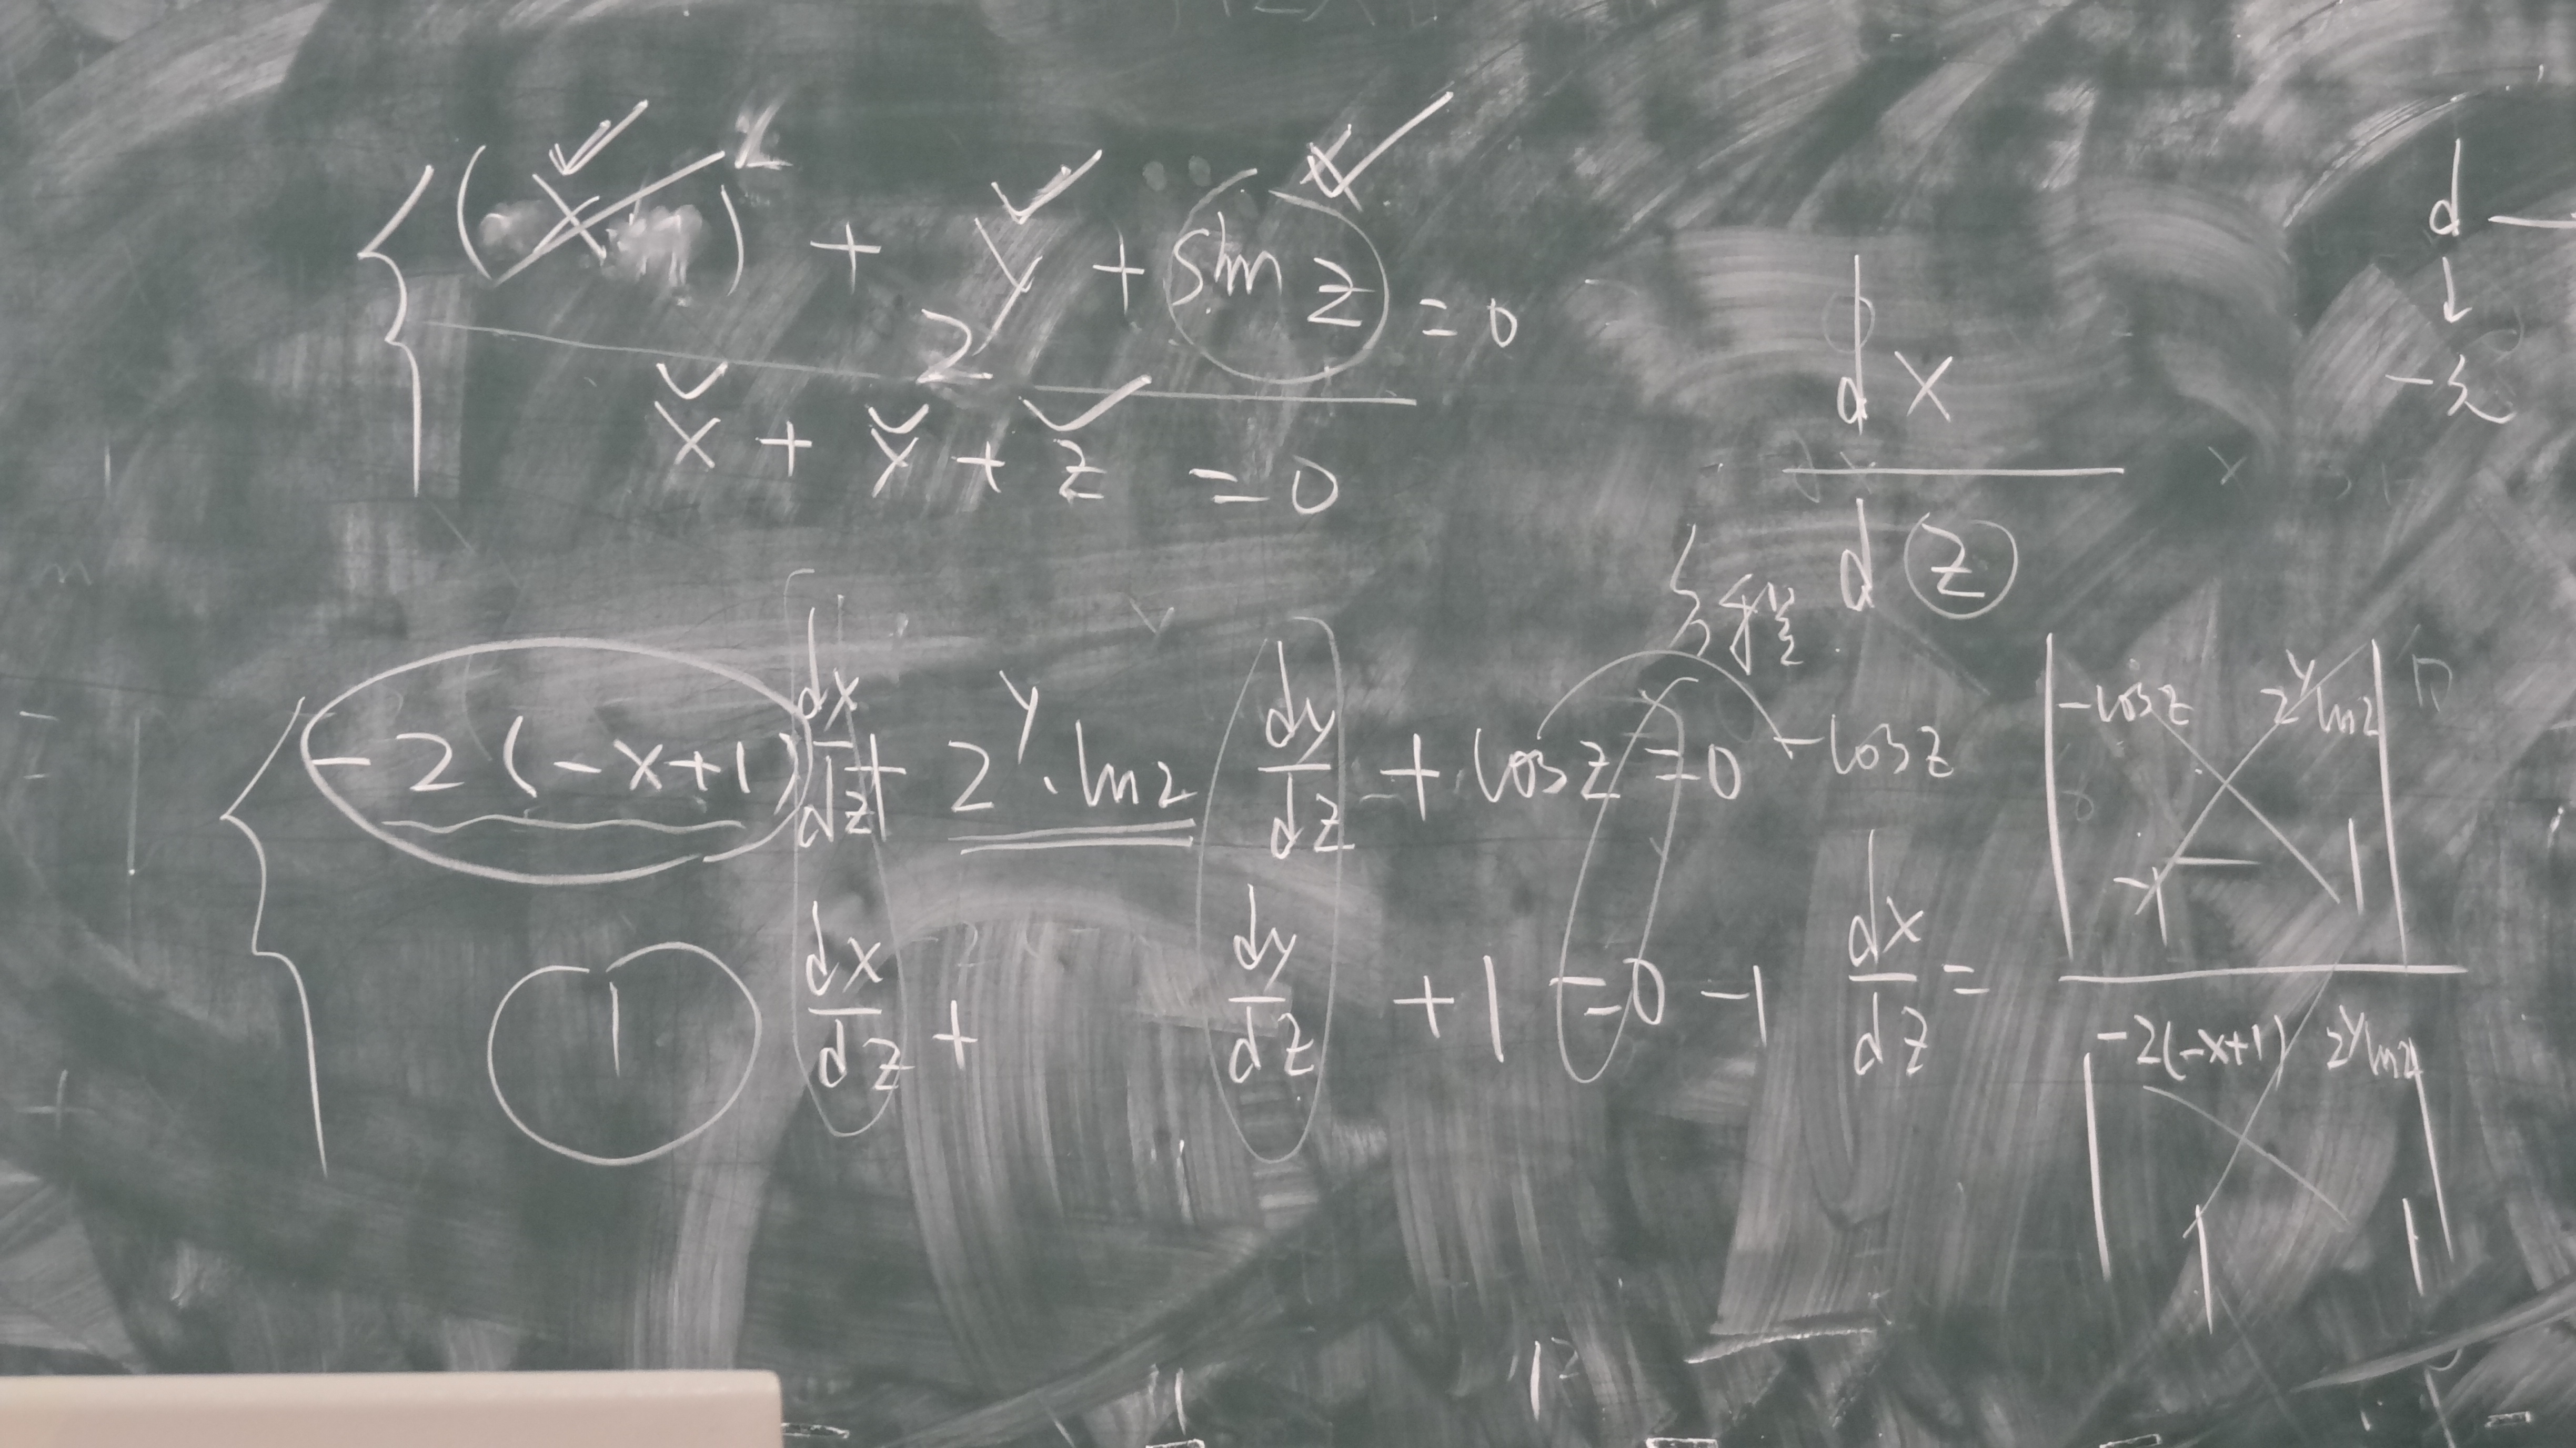 { (x )² + 2^y + sin z = 0
x + y + z = 0
dx
d z
{ -2(-x+1) dx/dz + 2^y · ln2 dy/dz + cos z = 0 - cos z
1 dx/dz + dy/dz + 1 = 0 - 1
dx/dz =
| -cos z 2^y ln2 |
| -1 1 |
| -2(-x+1) 2^y ln2 |
| 1 1 |